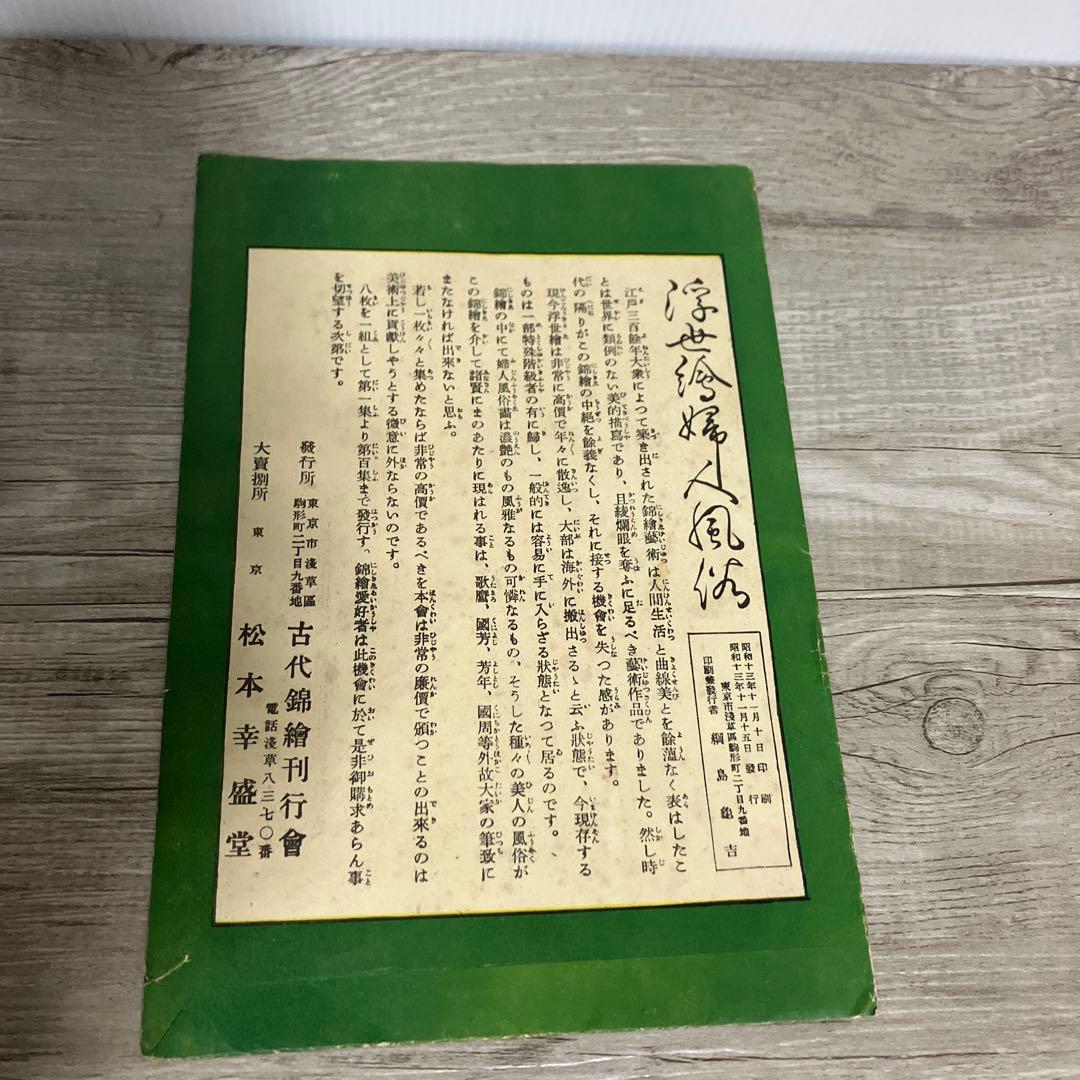 浮世繪婦人風俗
昭和十三年十一月十日印刷
昭和十三年十一月十五日發行
東京市淺草區駒形町二丁目九番地
印刷兼發行者 綱島龜吉
江戸三百餘年大衆によつて築き出された錦繪藝術は人間生活と曲線美とを餘薀なく表はしたこ
とは世界に類例のない美的描寫であり、且綾爛眼を奪ふに足るべき藝術作品でありました。然し時
代の隔りがこの錦繪の中絶を餘義なくし、それに接する機會を失つた感があります。
現今浮世繪は非常に高價で年々に散逸し、大部は海外に搬出さるゝと云ふ狀態で、今現存する
ものは一部特殊階級者の有に歸し、一般的には容易に手に入らざる狀態となつて居るのです。
錦繪の中にて婦人風俗畵は濃艶のもの風雅なるもの可憐なるもの、そうした種々の美人の風俗が
この錦繪を介して諸賢にまのあたりに現はれる事は、歌麿、國芳、芳年、國周等外故大家の筆致に
またなければ出來ないと思ふ。
若し一枚々々と集めたならば非常の高價であるべきを本會は非常の廉價で頒つことの出來るのは
美術上に貢獻しやうとする微意に外ならないのです。
八枚を一組として第一集より第百集まで發行す。錦繪愛好者は此機會に於て是非御購求あらん事
を切望する次第です。
發行所 東京市淺草區駒形町二丁目九番地 古代錦繪刊行會
電話淺草八三七〇番
大賣捌所 東京 松本幸盛堂